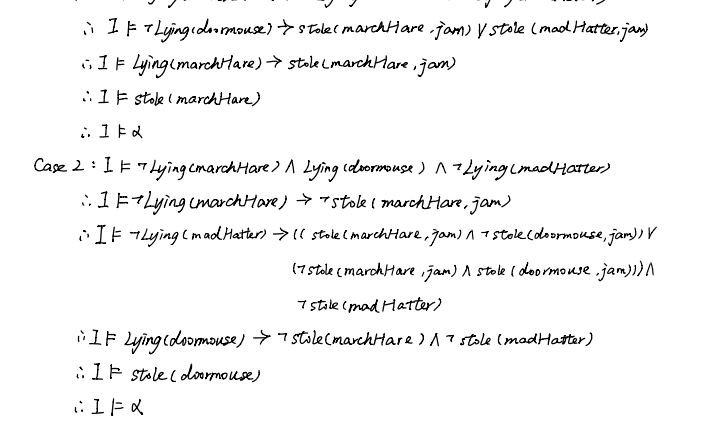 ∴ I ⊨ ¬Lying(doormouse) → stole(marchHare, jam) ∨ stole (madHatter, jam)
∴ I ⊨ Lying(marchHare) → stole(marchHare, jam)
∴ I ⊨ stole(marchHare)
∴ I ⊨ α
Case 2 : I ⊨ ¬Lying(marchHare) ∧ Lying(doormouse) ∧ ¬Lying(madHatter)
∴ I ⊨ ¬Lying(marchHare) → ¬stole(marchHare, jam)
∴ I ⊨ ¬Lying(madHatter) → (( stole(marchHare, jam) ∧ ¬stole(doormouse, jam)) ∨
(¬stole(marchHare, jam) ∧ stole(doormouse, jam))) ∧
¬stole(madHatter)
∴ I ⊨ Lying(doormouse) → ¬stole(marchHare) ∧ ¬stole (madHatter)
∴ I ⊨ stole(doormouse)
∴ I ⊨ α